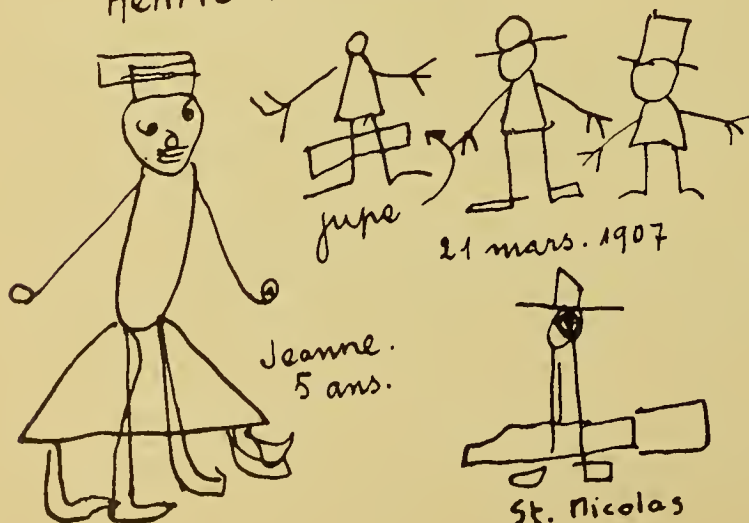 jupe
21 mars. 1907
Jeanne.
5 ans.
St. Nicolas